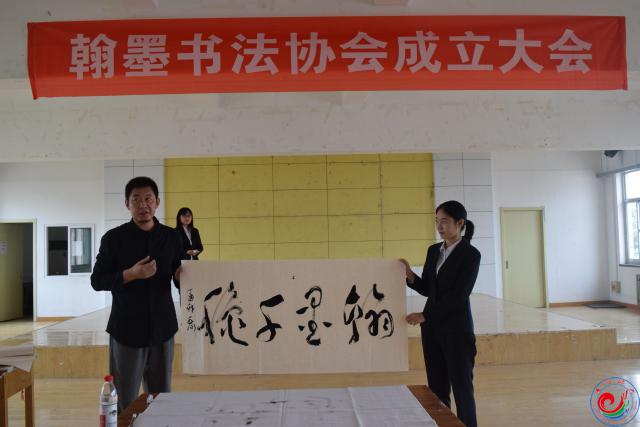 翰墨书法协会成立大会
翰墨千穐